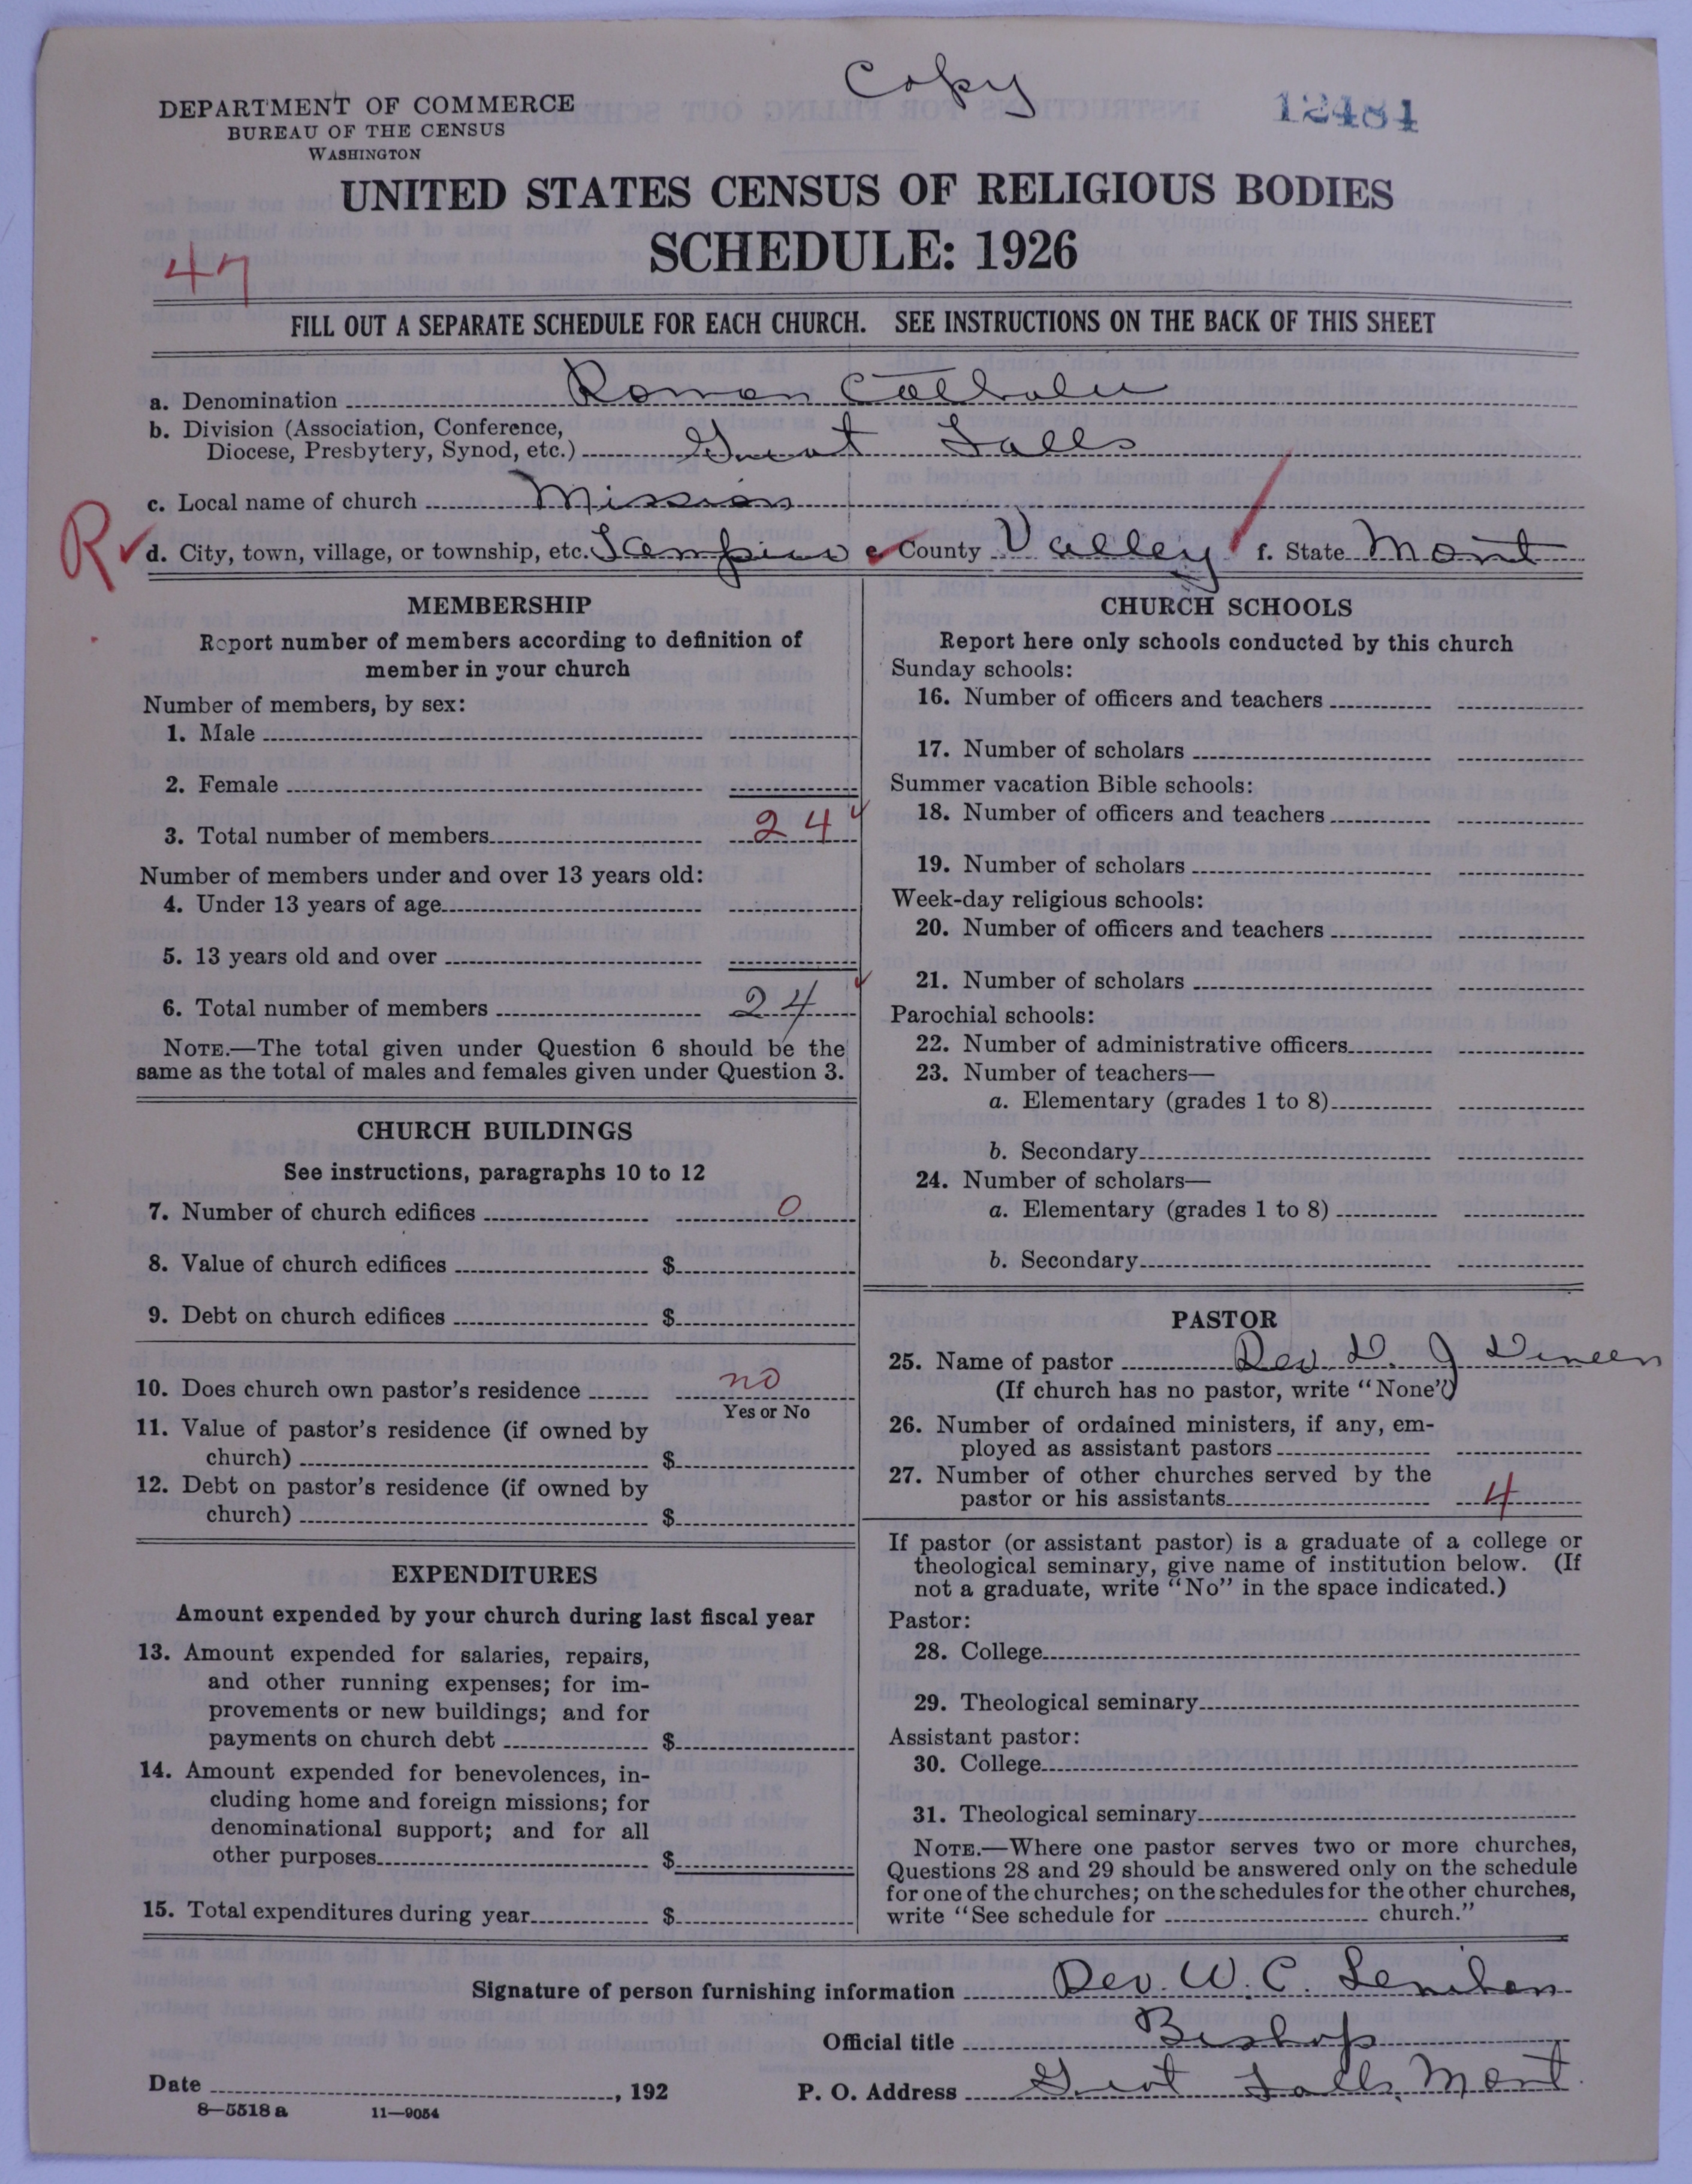 Copy
12484
DEPARTMENT OF COMMERCE
BUREAU OF THE CENSUS
WASHINGTON
UNITED STATES CENSUS OF RELIGIOUS BODIES
SCHEDULE: 1926
47
FILL OUT A SEPARATE SCHEDULE FOR EACH CHURCH. SEE INSTRUCTIONS ON THE BACK OF THIS SHEET
a. Denomination Roman Catholic
b. Division (Association, Conference,
Diocese, Presbytery, Synod, etc.) Great Falls
c. Local name of church Mission
R d. City, town, village, or township, etc. e. County Valley f. State Mont
MEMBERSHIP
Report number of members according to definition of
member in your church
Number of members, by sex:
1. Male
2. Female
3. Total number of members 24
Number of members under and over 13 years old:
4. Under 13 years of age
5. 13 years old and over
6. Total number of members 24
NOTE.—The total given under Question 6 should be the
same as the total of males and females given under Question 3.
CHURCH BUILDINGS
See instructions, paragraphs 10 to 12
7. Number of church edifices 0
8. Value of church edifices $
9. Debt on church edifices $
10. Does church own pastor's residence no
Yes or No
11. Value of pastor's residence (if owned by
church) $
12. Debt on pastor's residence (if owned by
church) $
EXPENDITURES
Amount expended by your church during last fiscal year
13. Amount expended for salaries, repairs,
and other running expenses; for im-
provements or new buildings; and for
payments on church debt $
14. Amount expended for benevolences, in-
cluding home and foreign missions; for
denominational support; and for all
other purposes $
15. Total expenditures during year $
CHURCH SCHOOLS
Report here only schools conducted by this church
Sunday schools:
16. Number of officers and teachers
17. Number of scholars
Summer vacation Bible schools:
18. Number of officers and teachers
19. Number of scholars
Week-day religious schools:
20. Number of officers and teachers
21. Number of scholars
Parochial schools:
22. Number of administrative officers
23. Number of teachers—
a. Elementary (grades 1 to 8)
b. Secondary
24. Number of scholars—
a. Elementary (grades 1 to 8)
b. Secondary
PASTOR
25. Name of pastor Rev. D. J Dineen
(If church has no pastor, write "None")
26. Number of ordained ministers, if any, em-
ployed as assistant pastors
27. Number of other churches served by the
pastor or his assistants 4
If pastor (or assistant pastor) is a graduate of a college or
theological seminary, give name of institution below. (If
not a graduate, write "No" in the space indicated.)
Pastor:
28. College
29. Theological seminary
Assistant pastor:
30. College
31. Theological seminary
NOTE.—Where one pastor serves two or more churches,
Questions 28 and 29 should be answered only on the schedule
for one of the churches; on the schedules for the other churches,
write "See schedule for church."
Signature of person furnishing information Rev. W. C. Lenihan
Official title Bishop
Date , 192 P. O. Address Great Falls, Mont.
8—5518 a 11—9054